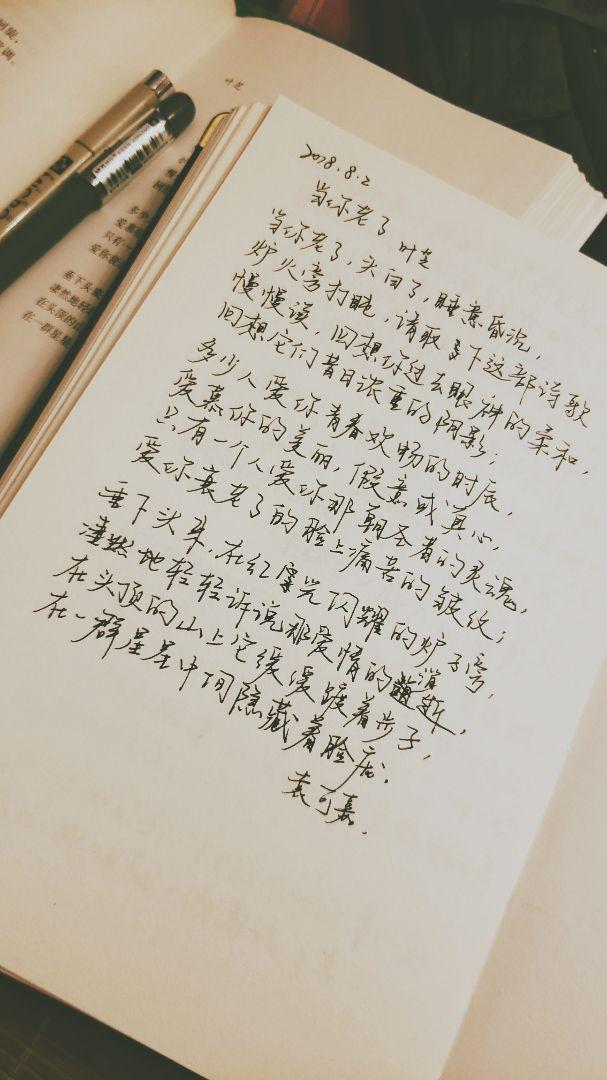 2018.8.2
当你老了
叶芝
当你老了，头白了，睡意昏沉，
炉火旁打盹，请取下这部诗歌
慢慢读，回想你过去眼神的柔和，
回想它们昔日浓重的阴影；
多少人爱你青春欢畅的时辰，
爱慕你的美丽，假意或真心，
只有一个人爱你那朝圣者的灵魂，
爱你衰老了的脸上痛苦的皱纹；
垂下头来，在红光闪耀的炉子旁，
凄然地轻轻诉说那爱情的消逝，
在头顶的山上它缓缓踱着步子，
在一群星星中间隐藏着脸庞。
袁可嘉.
叶芝
多少
爱慕
只有一
爱你
垂下头来
凄然地轻
在头顶的山
在一群星星